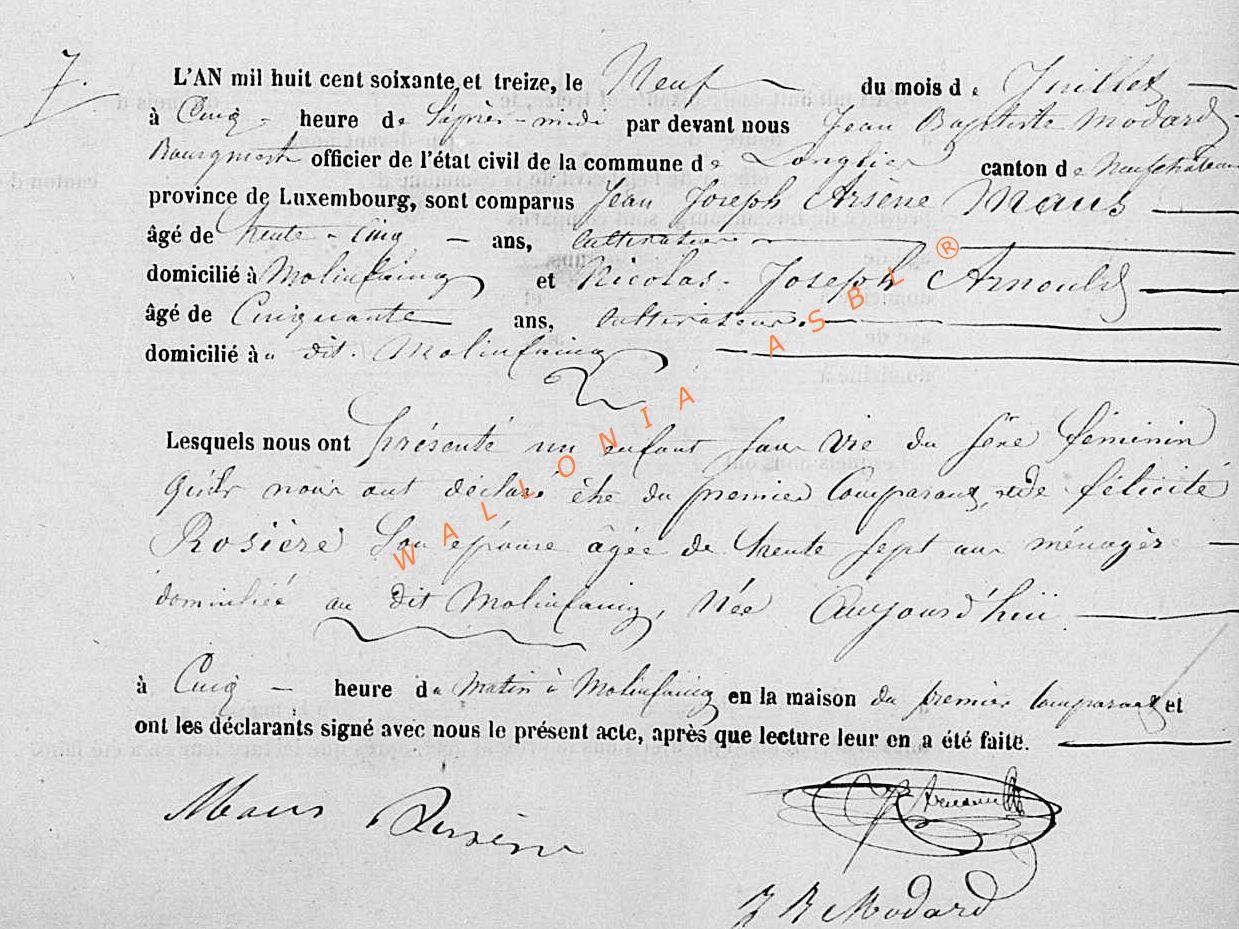 7.
L'AN mil huit cent soixante et treize, le Neuf du mois de Juillet
à Cinq heure de l'après-midi par devant nous Jean Baptiste Modard
Bourgmestre officier de l'état civil de la commune de Longlier canton de Neufchâteau
province de Luxembourg, sont comparus Jean Joseph Arsène Maus
âgé de trente-cinq ans, cultivateur
domicilié à Molinfaing et Nicolas-Joseph Arnould
âgé de Cinquante ans, cultivateur.
domicilié à dit Molinfaing
Lesquels nous ont présenté un enfant sans vie du sexe féminin
qu'ils nous ont déclaré être du premier Comparant, et de félicité
Rosière Son épouse âgée de trente sept ans ménagère
domiciliée au dit Molinfaing, Née Aujourd'hui
à Cinq heure du matin à Molinfaing en la maison du premier Comparant et
ont les déclarants signé avec nous le présent acte, après que lecture leur en a été faite.
Maus Arsène
Arnould
J B Modard
WALLONIA ASBL ®